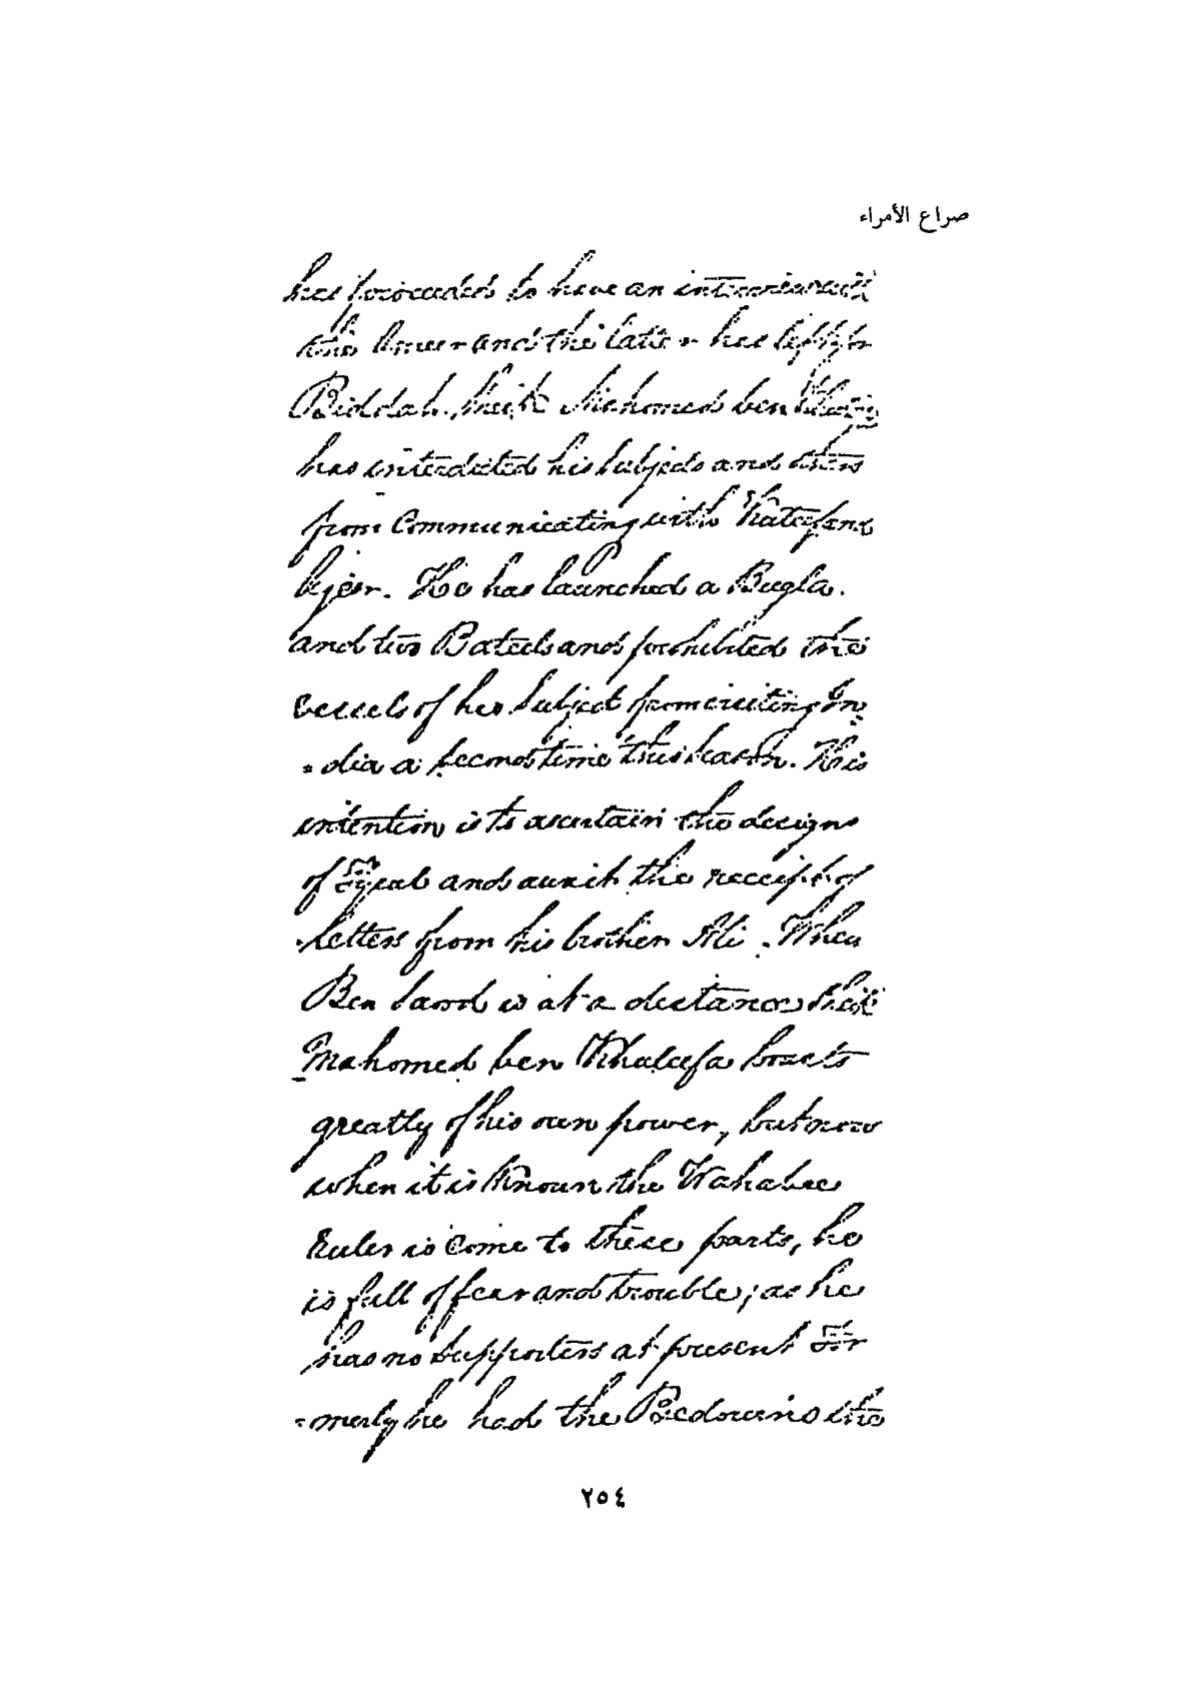 صراع الأمراء
has proceeded to have an interview with
the Ameer and the latter has left for
Biddah. Sheik Mahomed ben Khalifa
has interdicted his subjects and others
from Communicating with Kateef and
Ujeer. He has launched a Bugla.
and two Bateels and prohibited the
vessels of his subject from visiting In
-dia a second time this season. His
intention is to ascertain the designs
of and await the receipt of
letters from his brother Ali. When
Ben Saood is at a distance Sheik
Mahomed ben Khaleefa boasts
greatly of his own power, but now
when it is Known the Wahabee
Ruler is come to these parts, he
is full of fear and trouble; as he
has no supporters at present For
-merly he had the Bedouins the
٢٥٤